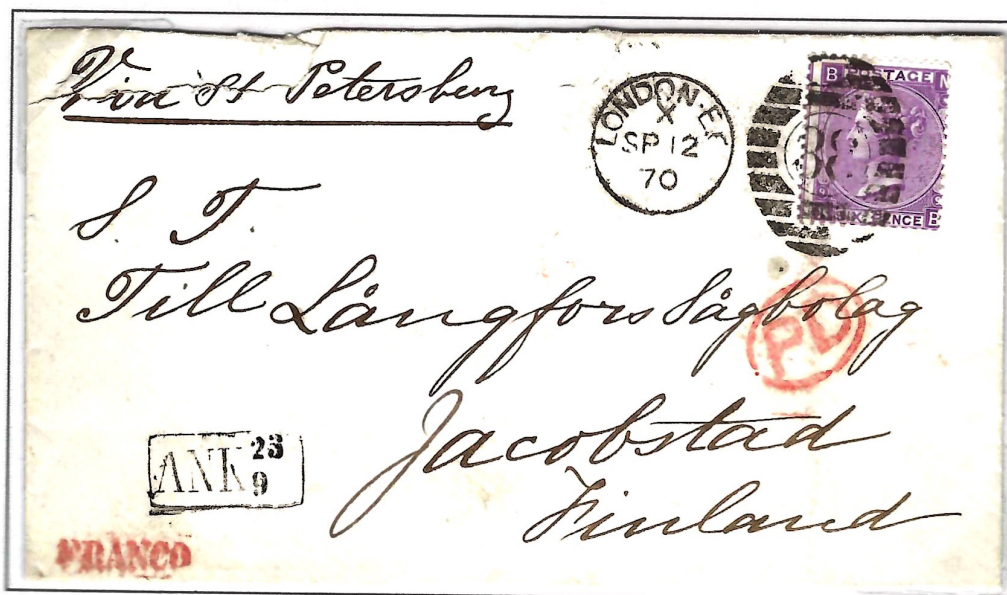 Via St Petersburg
LONDON·E.C
X
SP 12
70
B POSTAGE N
SIX PENCE B
S. T.
Till Långfors Sågbolag
PD
Jacobstad
Finland
ANK 23
9
FRANCO